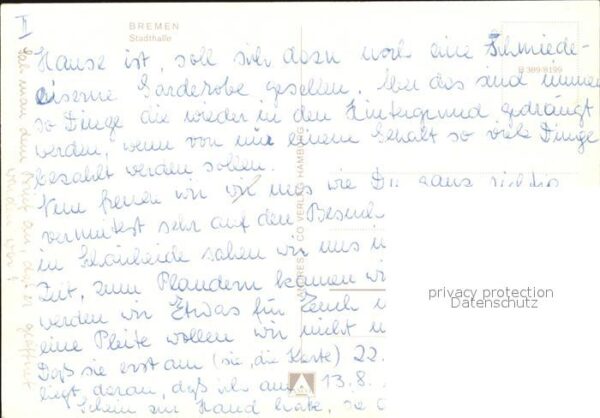 II
BREMEN
Stadthalle
B 389-8199
Hause ist, soll sich dazu noch eine Schmiede-
eiserne Garderobe gesellen. Aber das sind immer
so Dinge die wieder in den Hintergrund gedrängt
werden, wenn von nur einem Gehalt so viele Dinge
bezahlt werden sollen.
Nun freuen wir uns wie Du ganz richtig
vermutest sehr auf den Besuch
in sahen wir uns
Zeit, zum Plaudern kamen wi
werden wir Etwas für Euch
eine Pleite wollen wir nicht
Daß sie erst am (sie, die Karte) 22.
liegt daran, daß ich am 13.8.
Schein zur Hand hatte, sie
CO VERLAG HAMBURG
Sah man dem Brief an, daß er geöffnet
worden war?
privacy protection
Datenschutz